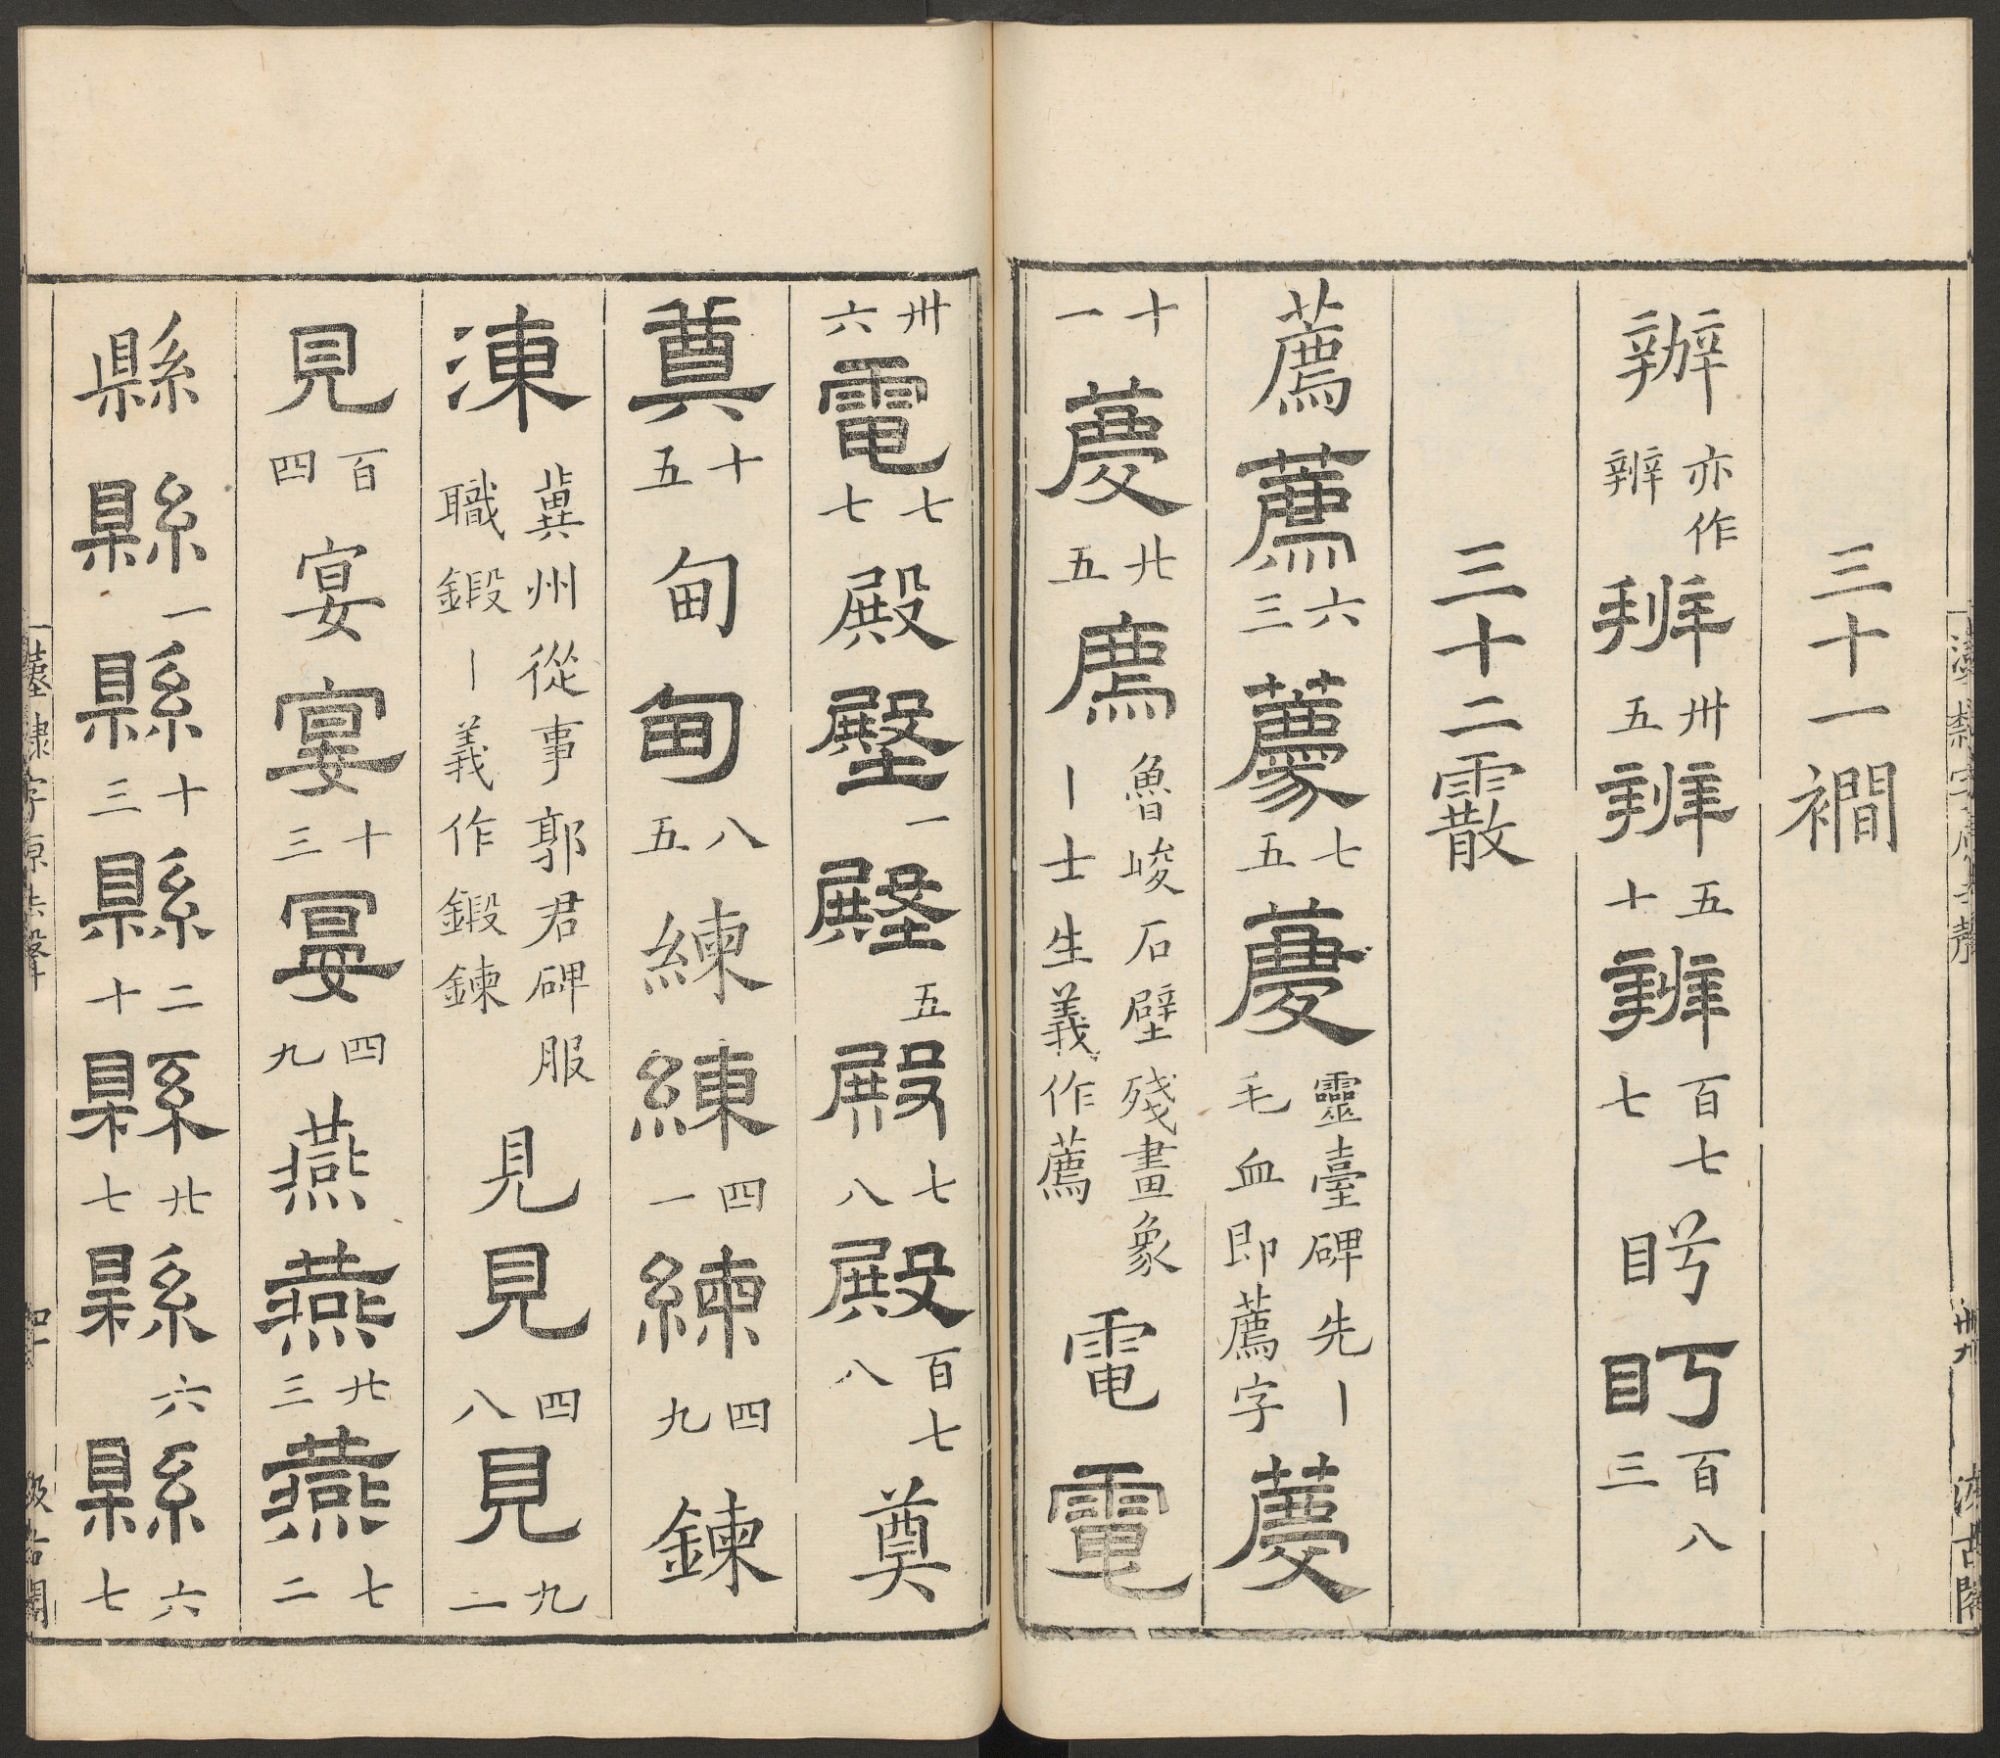 三十一襉
辦亦作辨辨卅五辨五十辨百七七盻盻百八三
三十二霰
薦薦六三薦七五薦靈臺碑先丨毛血即薦字薦
十一薦廿五廌魯峻石壁殘畫象丨士生義作薦電電
卅六電七七殿殿一殿五殿七八殿百七八奠
奠十五甸甸八五練練四一練四九鍊
湅冀州從事郭君碑服職鍛丨義作鍛鍊見見四八見九二
見百四宴宴十三宴四九燕燕廿三燕七二
縣縣一縣十三縣二十縣廿七縣六縣六七
漢隸字原去聲 卅九 汲古閣
漢隸字原去聲 汲古閣